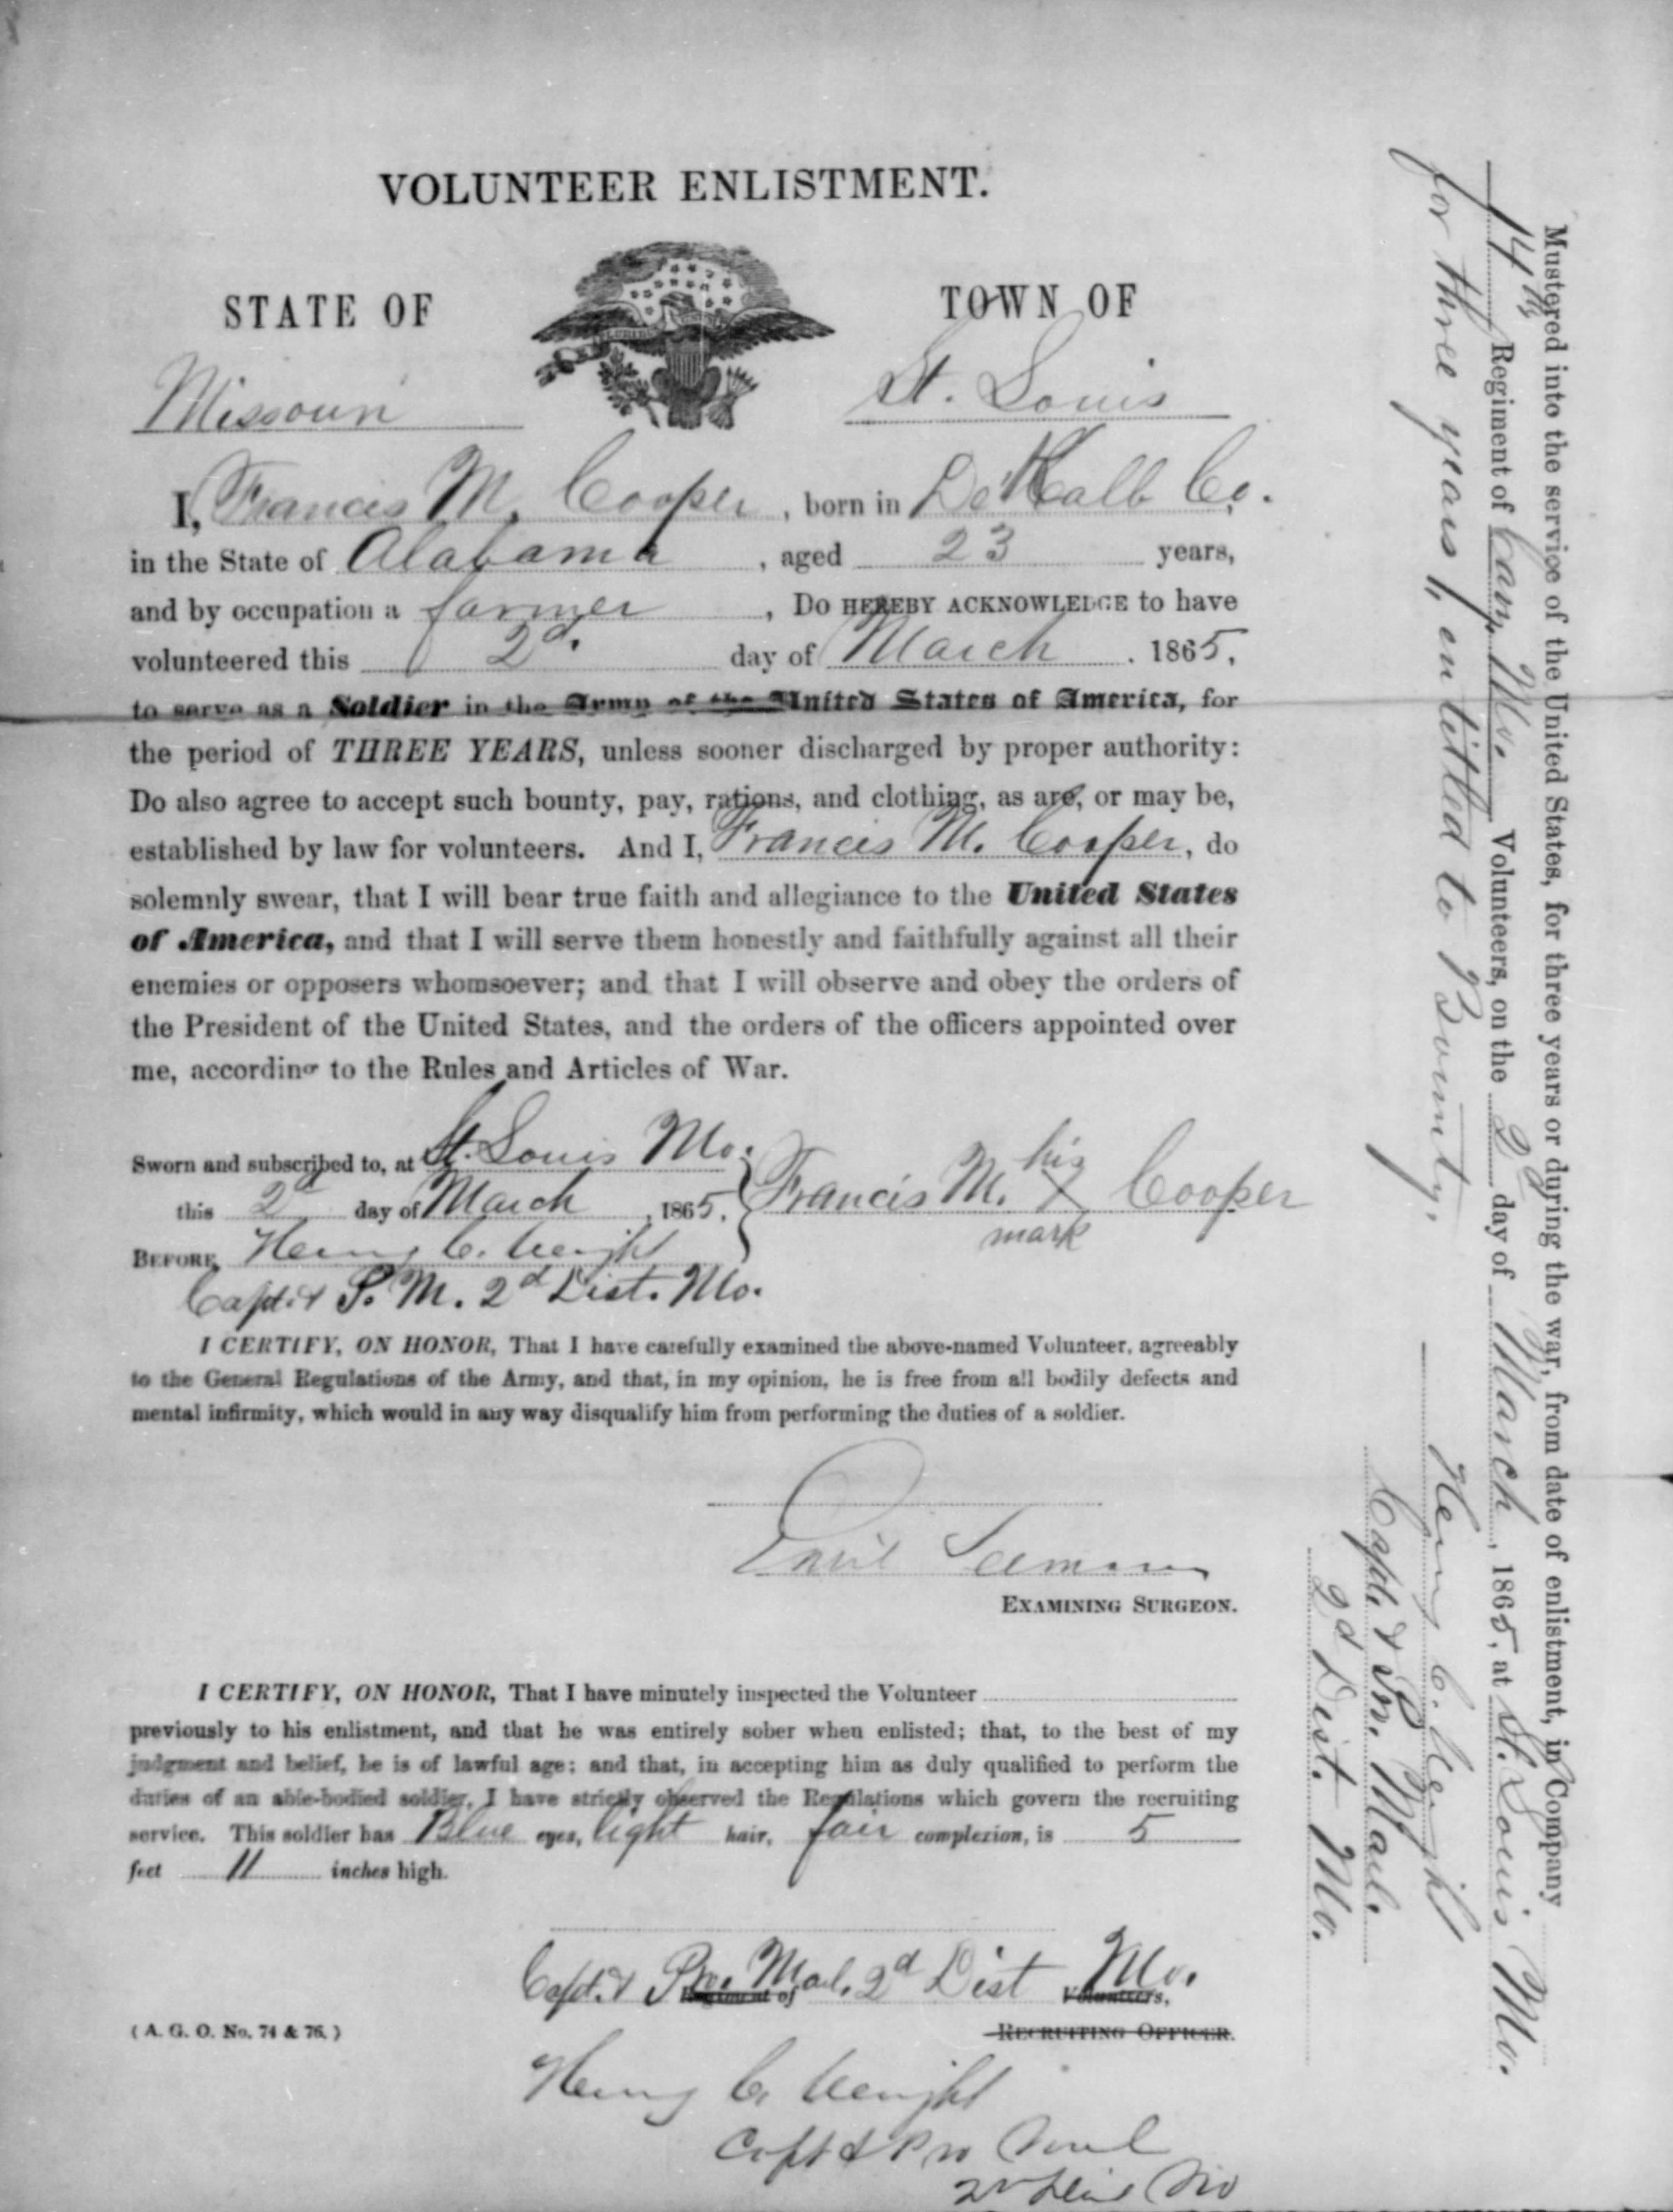 VOLUNTEER ENLISTMENT.
STATE OF
TOWN OF
Missouri
St. Louis
I, Francis M. Cooper, born in DeKalb Co.
in the State of Alabama, aged 23 years,
and by occupation a farmer, Do HEREBY ACKNOWLEDGE to have
volunteered this 2d. day of March. 1865,
to serve as a Soldier in the Army of the United States of America, for
the period of THREE YEARS, unless sooner discharged by proper authority:
Do also agree to accept such bounty, pay, rations, and clothing, as are, or may be,
established by law for volunteers. And I, Francis M. Cooper, do
solemnly swear, that I will bear true faith and allegiance to the United States
of America, and that I will serve them honestly and faithfully against all their
enemies or opposers whomsoever; and that I will observe and obey the orders of
the President of the United States, and the orders of the officers appointed over
me, according to the Rules and Articles of War.
Sworn and subscribed to, at St. Louis Mo.
this 2d day of March, 1865,
Francis M. his X mark Cooper
BEFORE Henry C.
Capt. & P. M. 2d Dist. Mo.
I CERTIFY, ON HONOR, That I have carefully examined the above-named Volunteer, agreeably
to the General Regulations of the Army, and that, in my opinion, he is free from all bodily defects and
mental infirmity, which would in any way disqualify him from performing the duties of a soldier.
Emil
EXAMINING SURGEON.
I CERTIFY, ON HONOR, That I have minutely inspected the Volunteer
previously to his enlistment, and that he was entirely sober when enlisted; that, to the best of my
judgment and belief, he is of lawful age; and that, in accepting him as duly qualified to perform the
duties of an able-bodied soldier, I have strictly observed the Regulations which govern the recruiting
service. This soldier has Blue eyes, light hair, fair complexion, is 5
feet 11 inches high.
Capt. & Pro. Mar. 2d Dist Mo.
Regiment of Volunteers,
(A. G. O. No. 74 & 76.)
RECRUITING OFFICER.
Henry C.
Capt & Pro Marl
2d Dist Mo
Mustered into the service of the United States, for three years or during the war, from date of enlistment, in Company
14th Regiment of Cav. Mo. Volunteers, on the 2d day of March, 1865, at St. Louis Mo.
for three years, entitled to Bounty,
Henry C.
Capt. & Pr. Marl.
2d Dist. Mo.